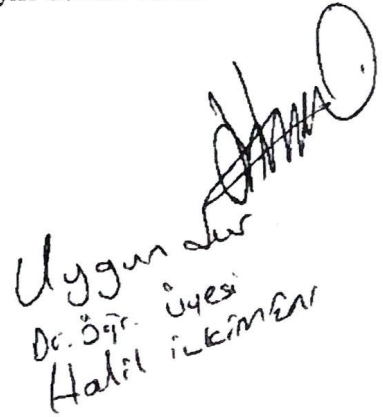 Uygundur
Dr. Öğr. Üyesi
Halil İLKİMEN